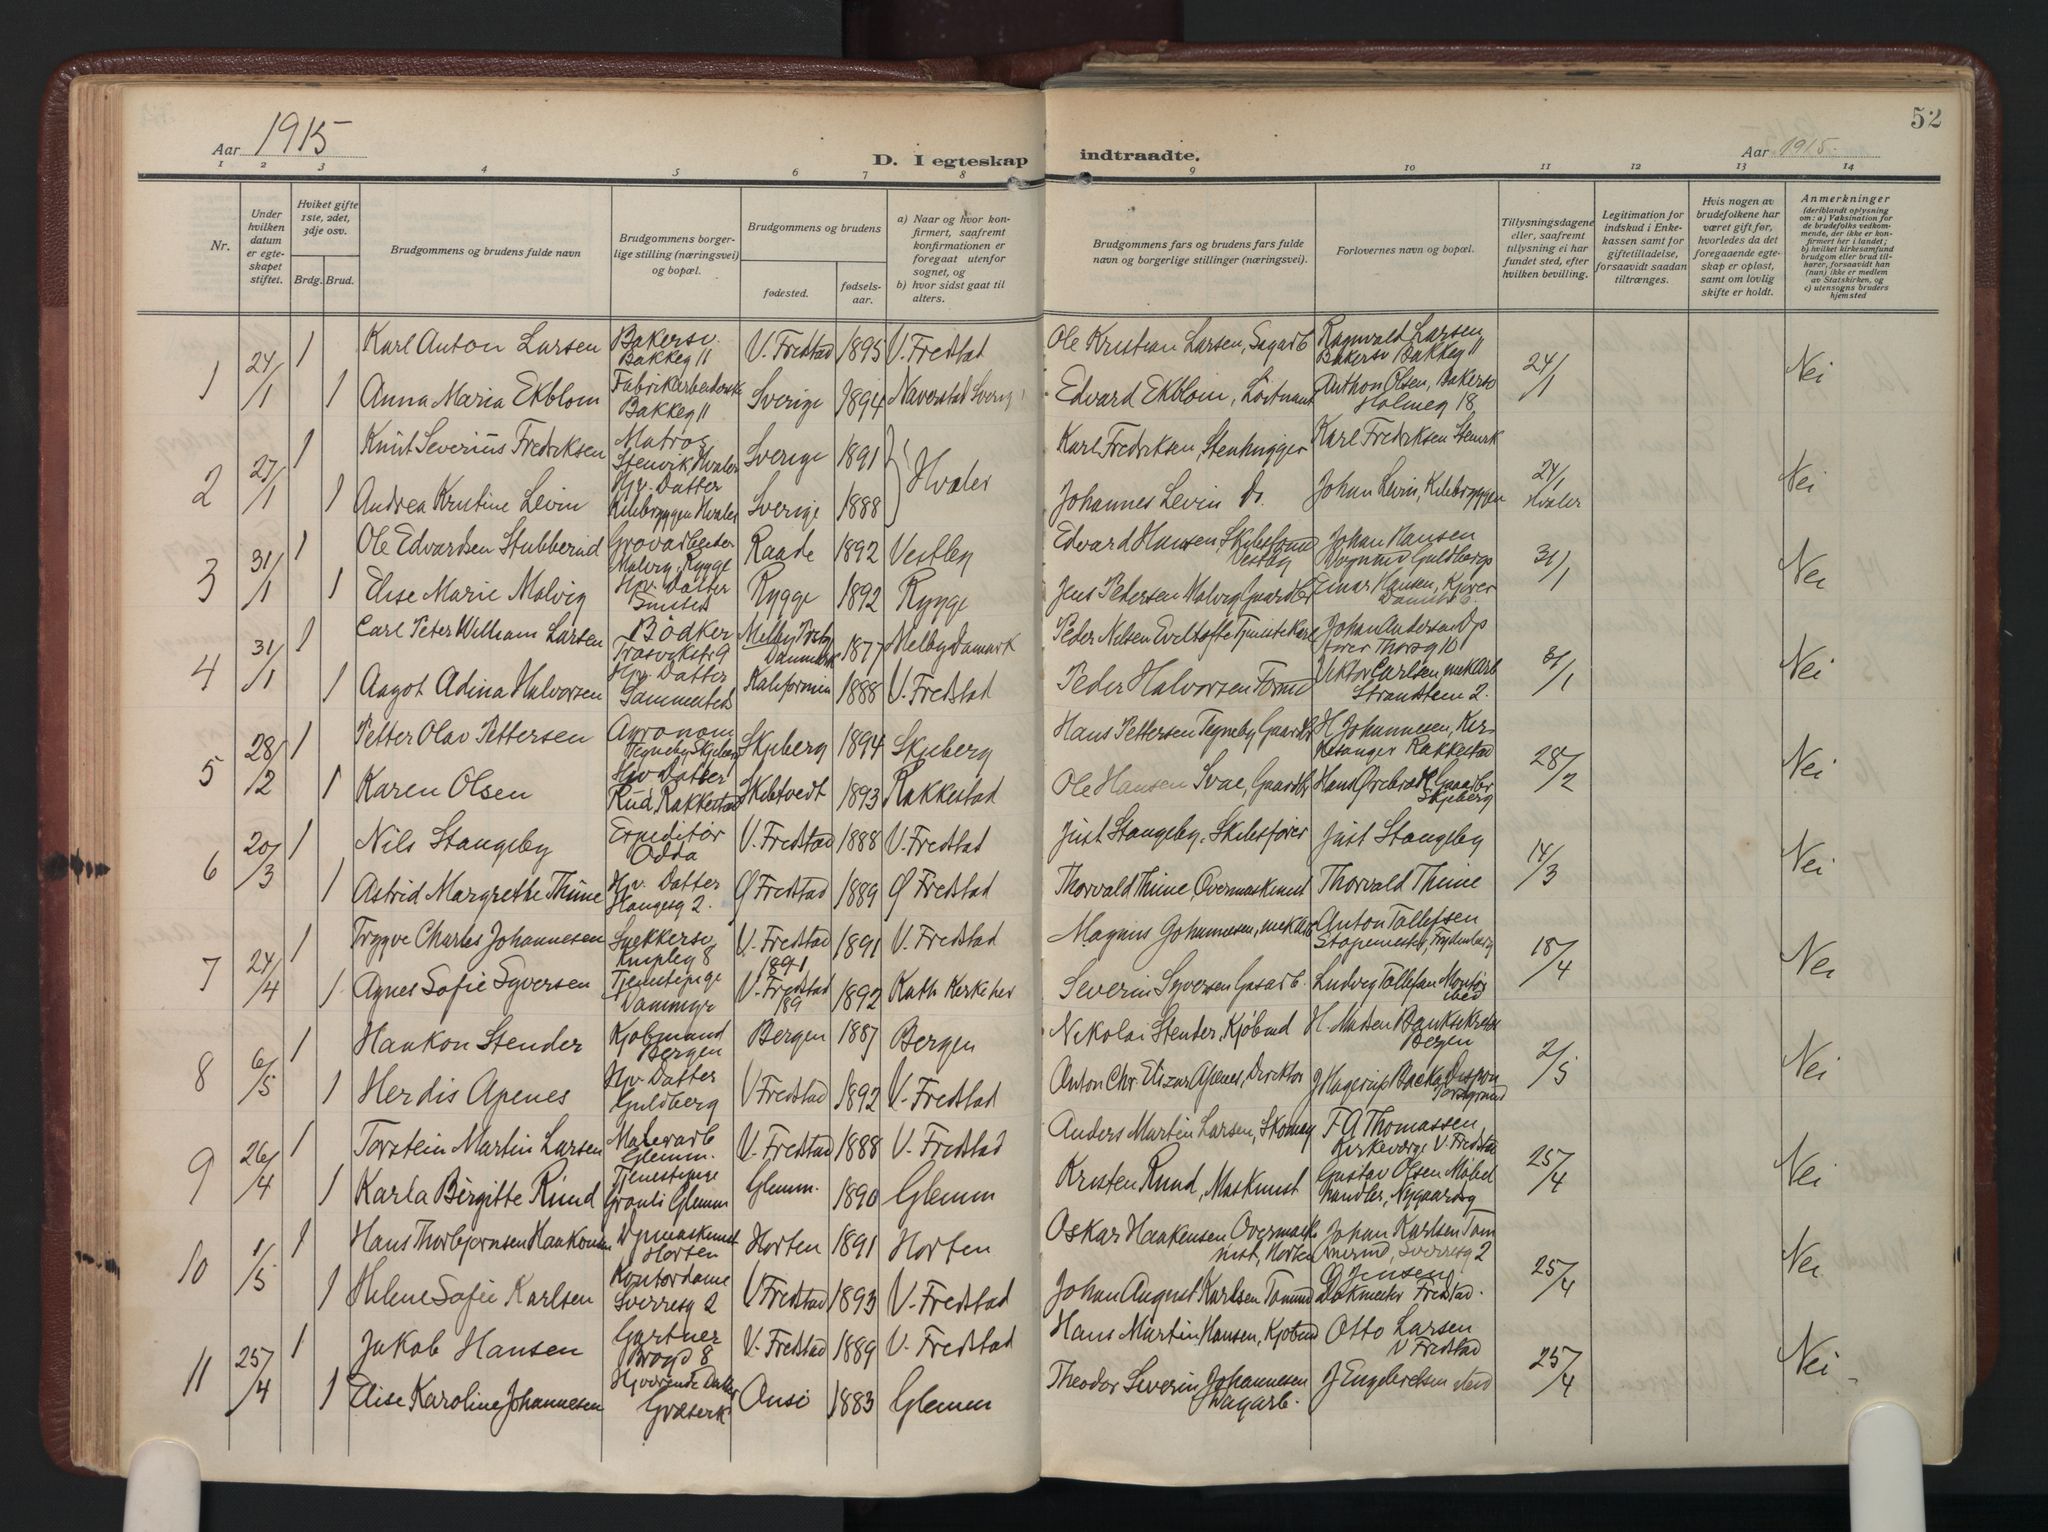 52
Aar 1915
D. I egteskap indtraadte.
Aar 1915.
1 2 3 4 5 6 7 8 9 10 11 12 13 14
Nr.
Under hvilken datum er egteskapet stiftet.
Hviket gifte 1ste, 2det, 3dje osv.
Brdg. Brud.
Brudgommens og brudens fulde navn
Brudgommens borgerlige stilling (næringsvei) og bopæl.
Brudgommens og brudens
fødested. fødselsaar.
a) Naar og hvor konfirmert, saafremt konfirmationen er foregaat utenfor sognet, og
b) hvor sidst gaat til alters.
Brudgommens fars og brudens fars fulde navn og borgerlige stillinger (næringsvei).
Forlovernes navn og bopæl.
Tillysningsdagene eller, saafremt tillysning ei har fundet sted, efter hvilken bevilling.
Legitimation for indskud i Enkekassen samt for giftetilladelse, forsaavidt saadan tiltrænges.
Hvis nogen av brudefolkene har været gift før, hvorledes da det foregaaende egteskap er opløst, samt om lovlig skifte er holdt.
Anmerkninger
(deriblandt oplysning om: a) Vaksination for de brudefolks vedkommende, der ikke er konfirmert her i landet; b) hvilket kirkesamfund brudgom eller brud tilhører, forsaavidt han (hun) ikke er medlem av Statskirken, og c) utensogns bruders hjemsted
1 24/1 1 Karl Anton Larsen Bakersv. Bakkeg 11 V. Fredstad 1895 V. Fredstad Ole Kristian Larsen, Sagarb Ragnvald Larsen Bakersv Bakkeg 11 24/1 Nei
1 Anna Maria Ekblom Fabrikarbeiderske Bakkeg 11 Sverige 1894 Naverstad Sverig Edvard Ekblom, Löitnant Anthon Olsen, Bakersv Holmeg 18
2 27/1 1 Knut Severius Fredriksen Matros Stenvik, Hvaler Sverige 1891 Hvaler Karl Fredriksen, Stenhugger Karl Fredriksen 24/1 Hvaler Nei
1 Andrea Kristine Levin Hjv. Datter Hvaler Sverige 1888 Johannes Levin do. Johan Levin,
3 31/1 1 Ole Edvardsen Stubberud Grovarbeider Malvig, Rygge Raade 1892 Vestby Edvard Hansen, Johan Hansen Guldbergs 31/1 Nei
1 Elise Marie Malvig Hjv. Datter Rygge 1892 Rygge Jens Pedersen Malvig Gaardbr Einar Hansen, Kjører
4 31/1 1 Carl Peter William Larsen Bödker Trosvikstr 9 Melby Danmark 1877 Melby Danmark Peder Nilsen Tjenestekarl Johan Andersen Thorsg 10 31/1 Nei
1 Aagot Adina Halvorsen Hjv. Datter Sammesteds Kalifornien 1888 V. Fredstad Peder Halvorsen Viktor Carlsen, mek Arb Strandstien 2.
5 28/2 1 Petter Olav Pettersen Agronom Tegneby Skjeberg Skjeberg 1894 Skjeberg Hans Pettersen Tegneby Gaardbr H Johannesen, Kirkesanger Rakkestad 28/2 Nei
1 Karen Olsen Hjv Datter Rud, Rakkestad Skibtvedt 1893 Rakkestad Ole Hansen Svae, Gaardbr Hans Gaardbr Skjeberg
6 20/3 1 Nils Stangeby Expeditör Odda V. Fredstad 1888 V. Fredstad Just Stangeby, Skibsfører Just Stangeby 14/3 Nei
1 Astrid Margrethe Thime Hjv. Datter Haugesg 2. Ø Fredstad 1889 Ø Fredstad Thorvald Thime, Overmaskinist Thorvald Thime
7 24/4 1 Trygve Charles Johannesen Snekkersv. Knipleg 8 V. Fredstad 1891 1891 V. Fredstad Magnus Johannesen, mek Arb Anton Tollefsen Støpemester, Frydenberg 18/4 Nei
1 Agnes Sofie Syversen Tjenestepige Dammyr V. Fredstad 189 1892 Kath Kirke her Severin Syversen Gasarb. Ludvig Tollefsen Montör ibid
8 6/5 1 Haakon Stender Kjøbmand Bergen Bergen 1887 Bergen Nikolai Stender, Kjøbmd H. Madsen Banksekretær Bergen 2/5 Nei
1 Herdis Apenes Hjv. Datter Guldberg V Fredstad 1892 V. Fredstad Anton Chr. Elizar Apenes, Direktør J Hagerup Backe, Dispon
9 26/4 1 Torstein Martin Larsen Malerarb Glemm. V. Fredstad 1888 V. Fredstad Anders Martin Larsen, Skomag F A Thomassen Kirkeværge V. Fredstad 25/4 Nei
1 Karla Birgitte Rund Tjenestepige Grønli Glemm Glemm. 1890 Glemm Kristen Rund, Maskinist Gustav Olsen Møbelhandler, Nygaardsg
10 1/5 1 Hans Thorbjørnsen Haakonsen Dpmaskinist Horten Horten 1891 Horten Oskar Haakensen Overmaskinist, Horten Johan Karlsen Tømmermd, Sverresg 2 25/4 Nei
1 Helene Sofie Karlsen Kontordame Sverresg 2 V Fredstad 1893 V. Fredstad Johan August Karlsen Tømmd O Jensen Dokmester Fredstad.
11 25/4 1 Jakob Hansen Gartner Brogd 8 V. Fredstad 1889 V. Fredstad Hans Martin Hansen, Kjøbmd Otto Larsen V Fredstad 25/4 Nei
1 Elise Karoline Johannesen Hjværende Datter Onsø 1883 Glemm Theodor Severin Johannesen Sagarb. J Engebretsen